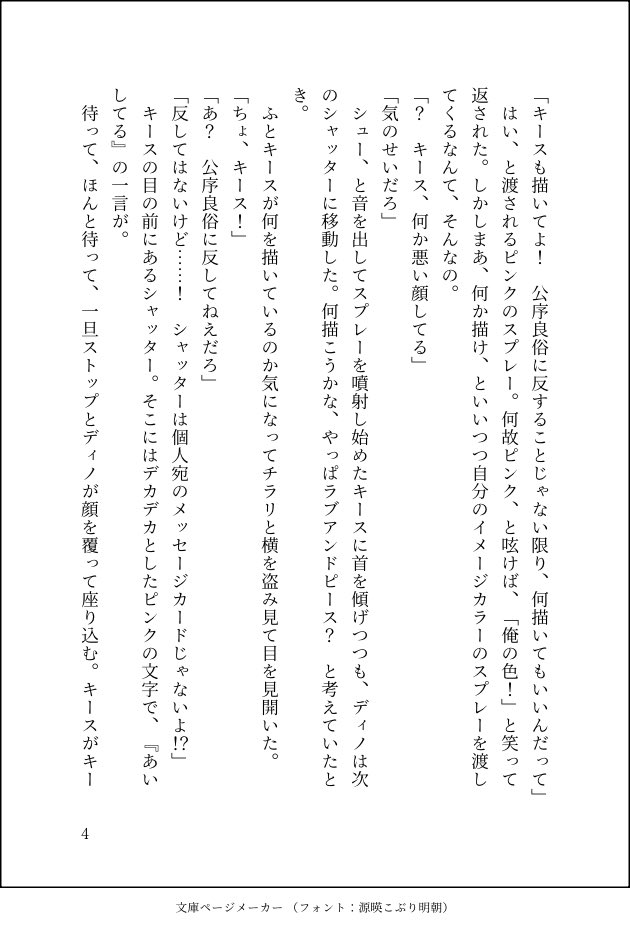 「キースも描いてよ！　公序良俗に反することじゃない限り、何描いてもいいんだって」
　はい、と渡されるピンクのスプレー。何故ピンク、と呟けば、「俺の色！」と笑って
返された。しかしまあ、何か描け、といいつつ自分のイメージカラーのスプレーを渡し
てくるなんて、そんなの。
「？　キース、何か悪い顔してる」
「気のせいだろ」
　シュー、と音を出してスプレーを噴射し始めたキースに首を傾げつつも、ディノは次
のシャッターに移動した。何描こうかな、やっぱラブアンドピース？　と考えていたと
き。
　ふとキースが何を描いているのか気になってチラリと横を盗み見て目を見開いた。
「ちょ、キース！」
「あ？　公序良俗に反してねえだろ」
「反してはないけど……！　シャッターは個人宛のメッセージカードじゃないよ!?」
　キースの目の前にあるシャッター。そこにはデカデカとしたピンクの文字で、『あい
してる』の一言が。
　待って、ほんと待って、一旦ストップとディノが顔を覆って座り込む。キースがキー
4
文庫ページメーカー （フォント：源暎こぶり明朝）